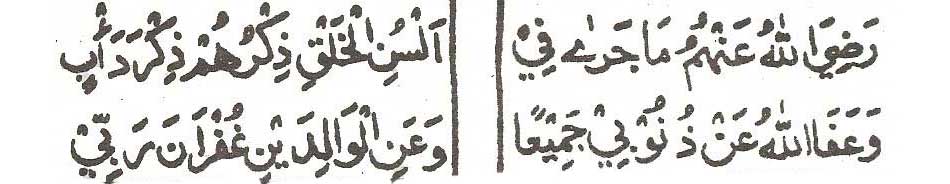 رَضِيَ اللهُ عَنْهُمُ مَا جَرٰى فِيْ اَلْسُنِ الْخَلْقِ ذِكْرُهُمْ ذِكْرَ دَأْبٍ
وَعَفَا اللهُ عَنْ ذُنُوْبِيْ جَمِيْعًا وَعَنِ الْوَالِدَيْنِ غُفْرَانَ رَبِّيْ